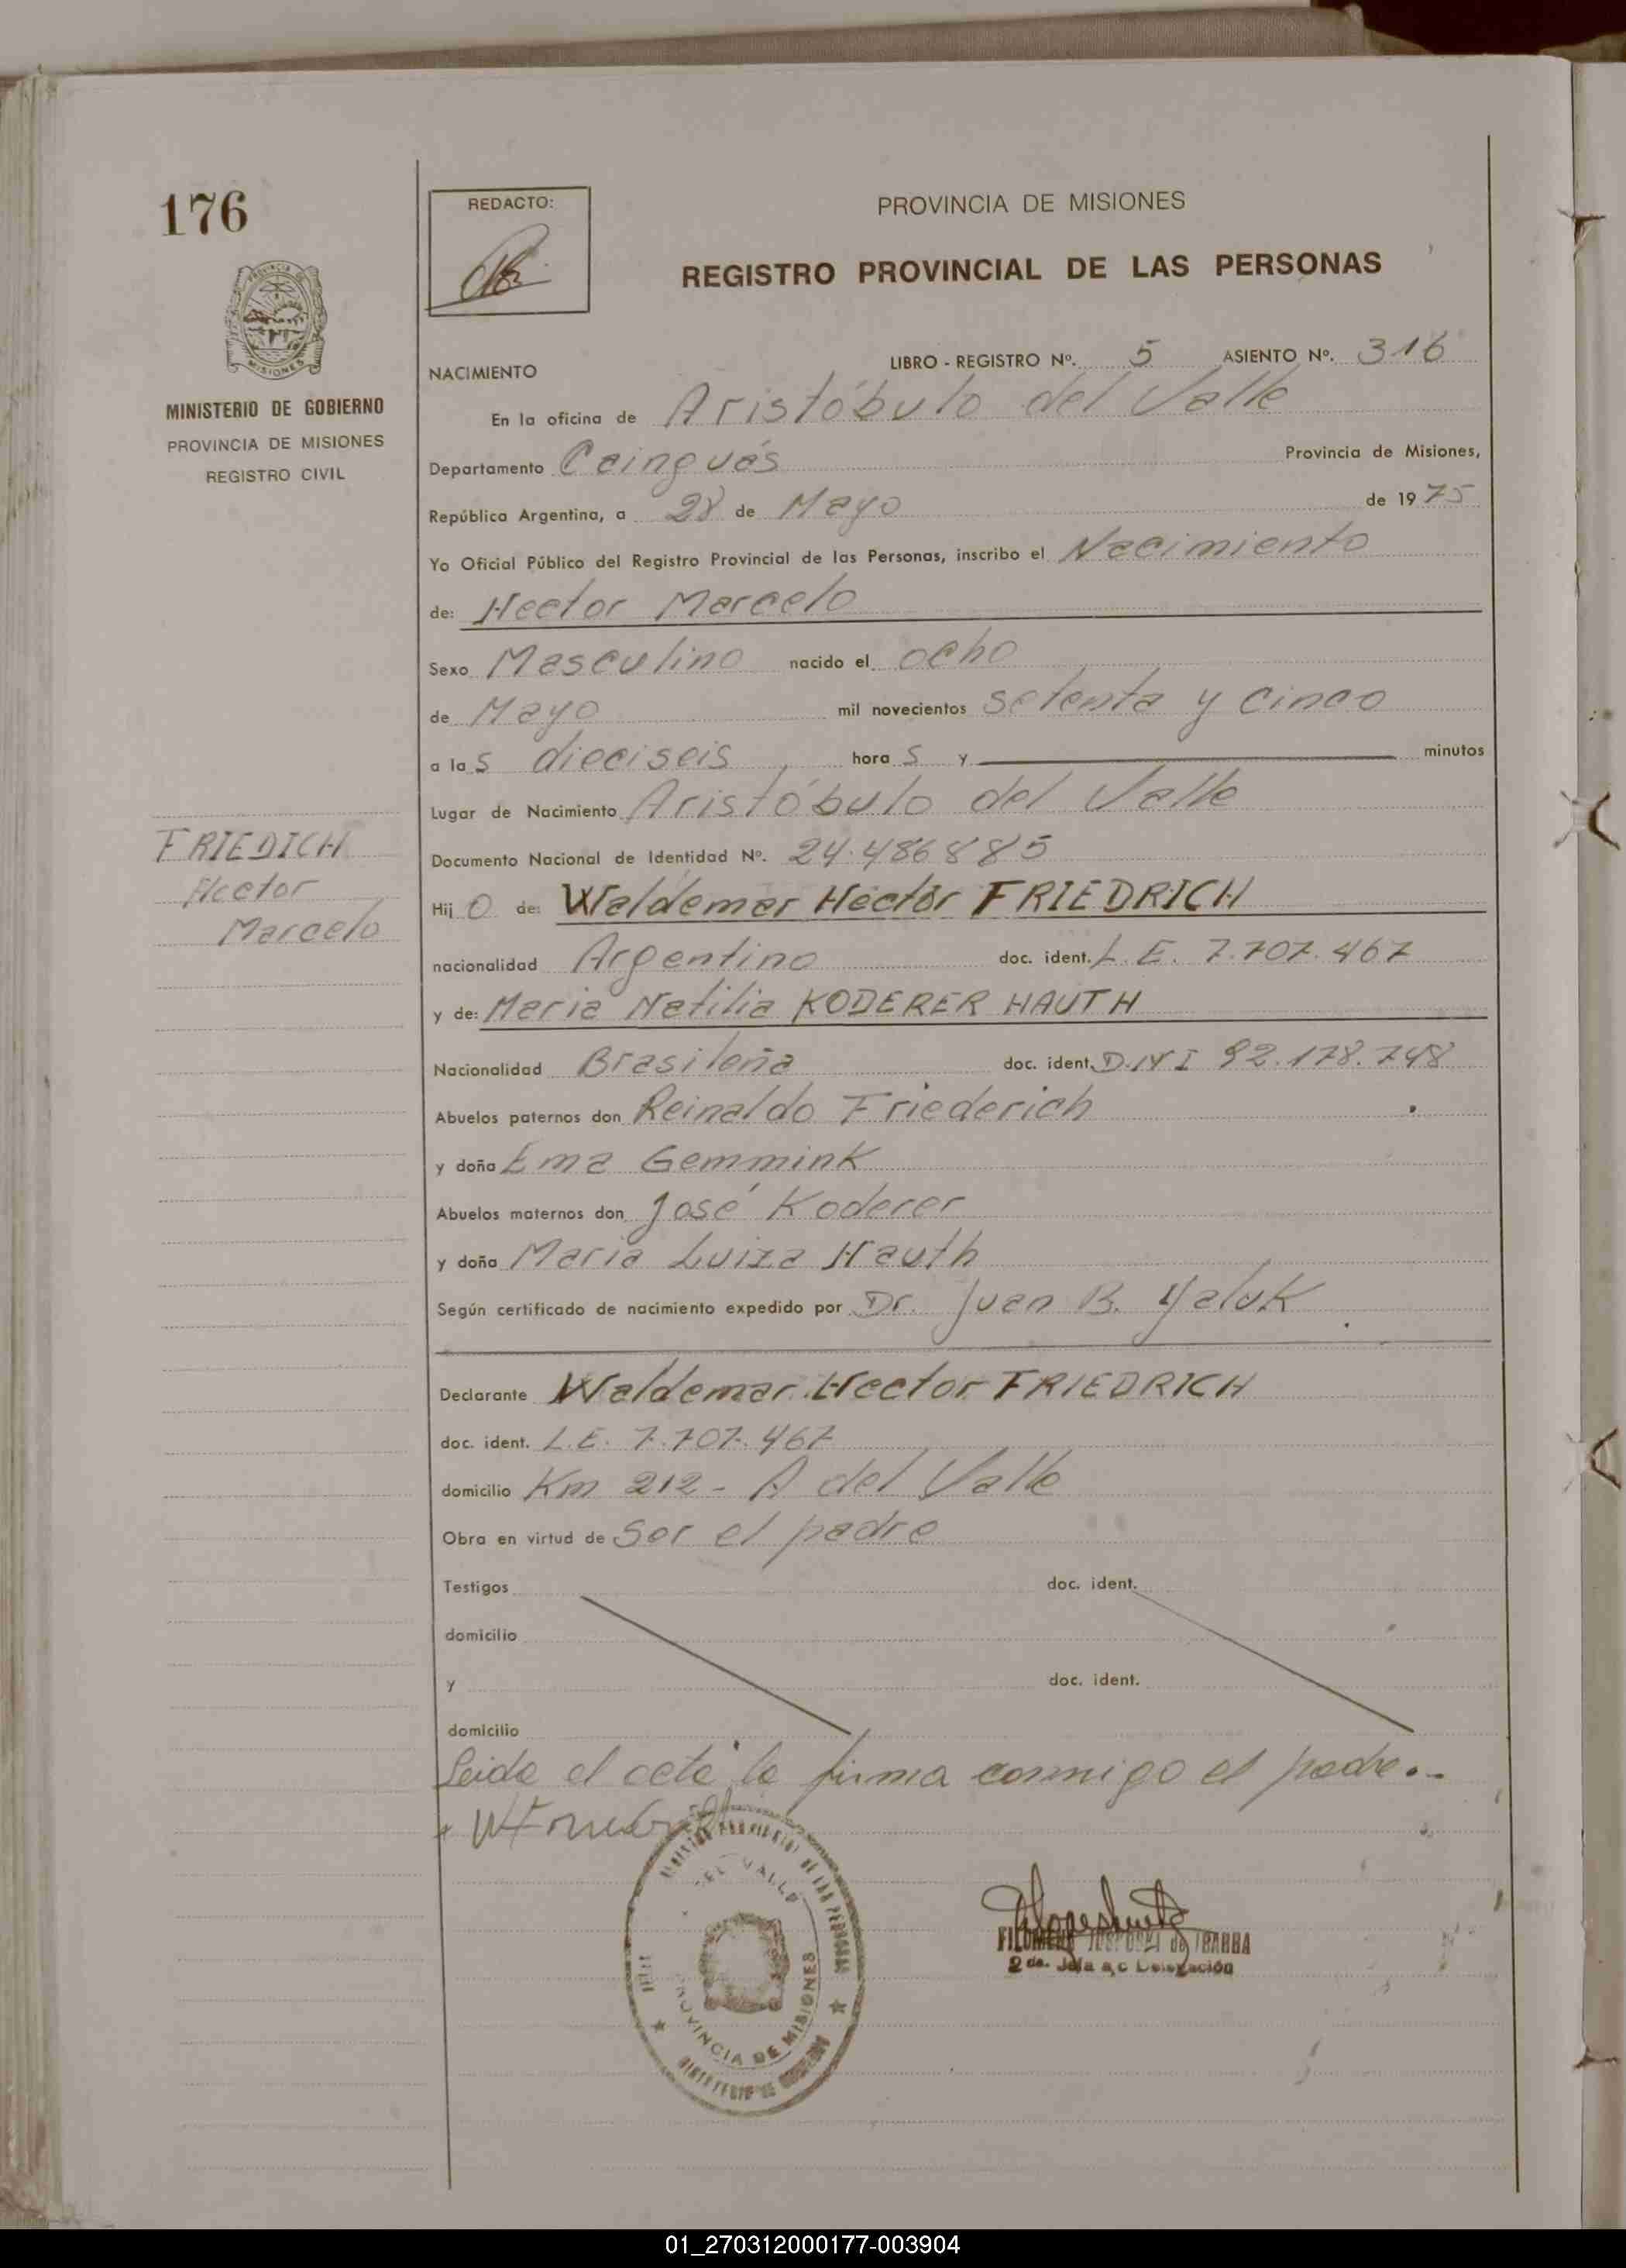 176
REDACTO:
PROVINCIA DE MISIONES
REGISTRO PROVINCIAL DE LAS PERSONAS
MINISTERIO DE GOBIERNO
PROVINCIA DE MISIONES
REGISTRO CIVIL
LIBRO - REGISTRO Nº. 5 ASIENTO Nº. 316
NACIMIENTO
En la oficina de Aristóbulo del Valle
Departamento Cainguás Provincia de Misiones,
República Argentina, a 28 de Mayo de 1975
Yo Oficial Público del Registro Provincial de las Personas, inscribo el Nacimiento
de: Hector Marcelo
Sexo Masculino nacido el ocho
de Mayo mil novecientos setenta y cinco
a las dieciseis horas y minutos
Lugar de Nacimiento Aristóbulo del Valle
FRIEDICH
Hector
Marcelo
Documento Nacional de Identidad Nº. 24.486885
Hijo de: Waldemar Hector FRIEDRICH
nacionalidad Argentino doc. ident. L.E. 7.707.467
y de: Maria Natilia KODERER HAUTH
Nacionalidad Brasileña doc. ident. D.N I 92.178.748
Abuelos paternos don Reinaldo Friederich
y doña Ema Gemmink
Abuelos maternos don José Koderer
y doña Maria Luiza Hauth
Según certificado de nacimiento expedido por Dr. Juan B. Yaluk
Declarante Waldemar Hector FRIEDRICH
doc. ident. L.E. 7.707.467
domicilio Km 212 - A del Valle
Obra en virtud de ser el padre
Testigos doc. ident.
domicilio
y doc. ident.
domicilio
Leida el acta la firma conmigo el padre.-
DEL VALLE
PROVINCIA DE MISIONES
de IBARRA
2 da. Jefa a/c Delegación
01_270312000177-003904